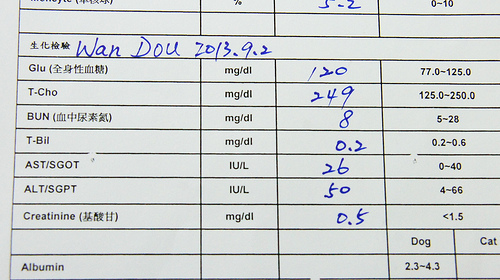 Monocyte (單核球) % 5.2 0~10
生化檢驗 Wan Dou 2013.9.2
Glu (全身性血糖) mg/dl 120 77.0~125.0
T-Cho mg/dl 249 125.0~250.0
BUN (血中尿素氮) mg/dl 8 5~28
T-Bil mg/dl 0.2 0.2~0.6
AST/SGOT IU/L 26 0~40
ALT/SGPT IU/L 50 4~66
Creatinine (基酸甘) mg/dl 0.5 <1.5
Dog Cat
Albumin 2.3~4.3